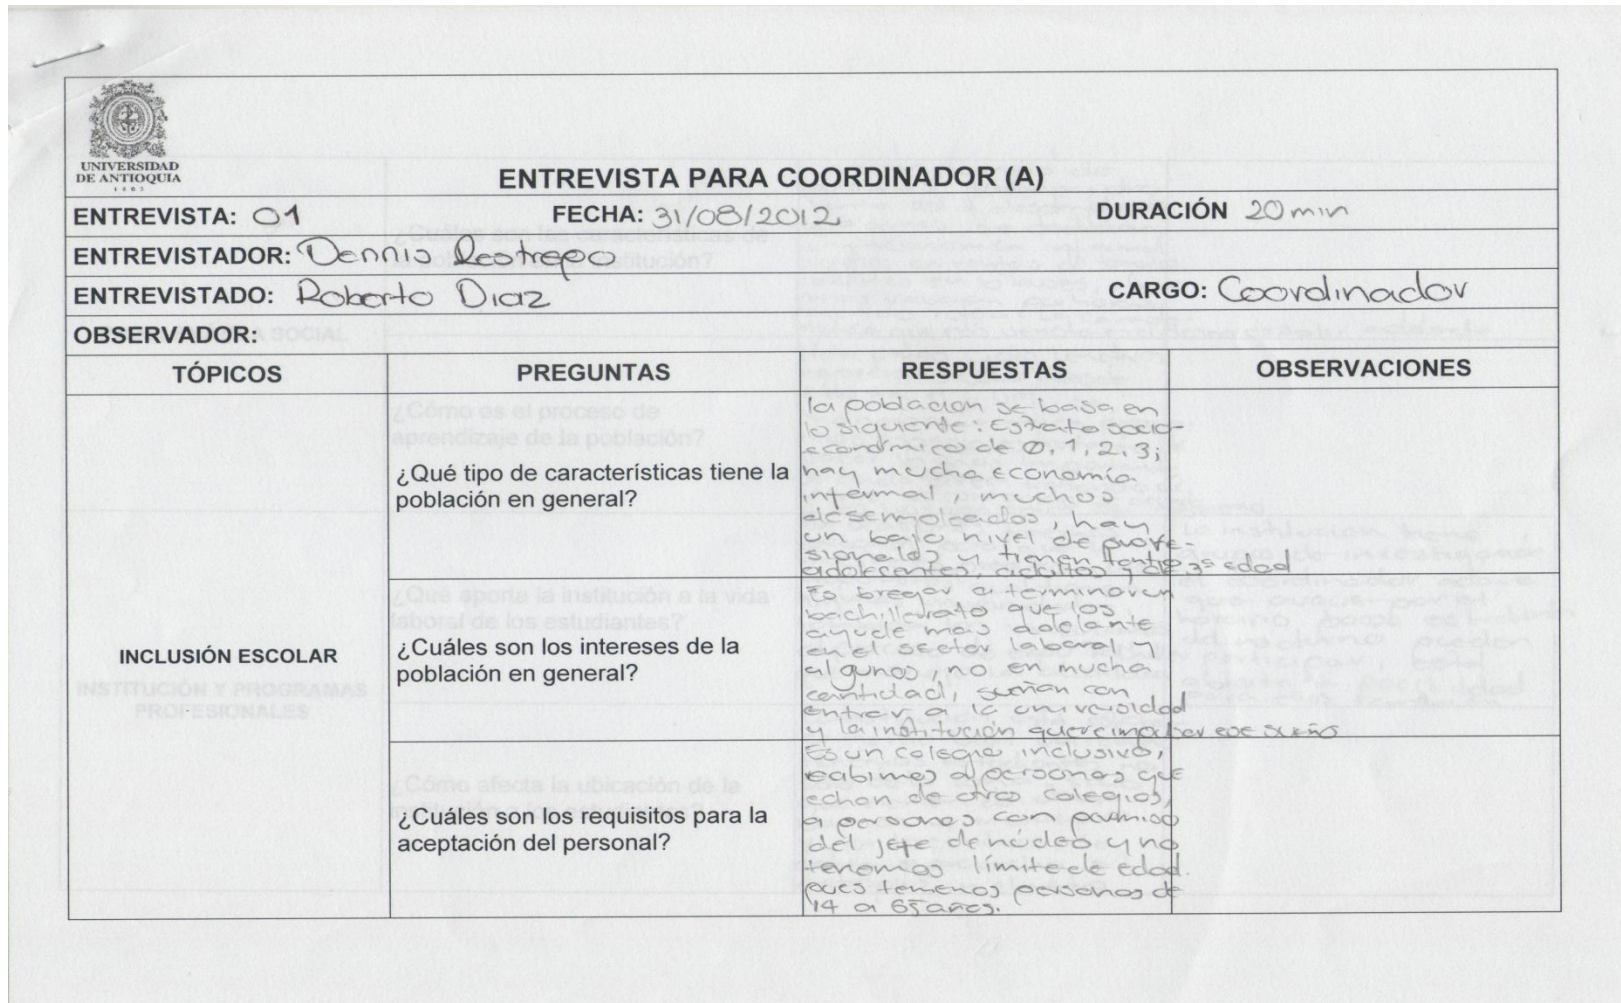 UNIVERSIDAD
DE ANTIOQUIA
1803
ENTREVISTA PARA COORDINADOR (A)
ENTREVISTA: 01 FECHA: 31/08/2012 DURACIÓN 20 min
ENTREVISTADOR: Dennis Restrepo
ENTREVISTADO: Roberto Diaz CARGO: Coordinador
OBSERVADOR:
TÓPICOS PREGUNTAS RESPUESTAS OBSERVACIONES
INCLUSIÓN ESCOLAR
¿Qué tipo de características tiene la
población en general?
la población se basa en
lo siguiente: Estrato socio-
económico de 0, 1, 2, 3;
hay mucha economía
informal, muchos
desempleados, hay
un bajo nivel de profe-
sionales y tienen tanto
adolescentes, adultos y de 3ª edad
¿Cuáles son los intereses de la
población en general?
Es bregar a terminar un
bachillerato que los
ayude mas adelante
en el sector laboral y
algunos, no en mucha
cantidad, sueñan con
entrar a la universidad
y la institución quere ese sueño
¿Cuáles son los requisitos para la
aceptación del personal?
Es un colegio inclusivo,
a personas que
echan de otros colegios,
a personas con permiso
del jefe de núcleo y no
tenemos límite de edad.
pues tenemos personas de
14 a 65 años.